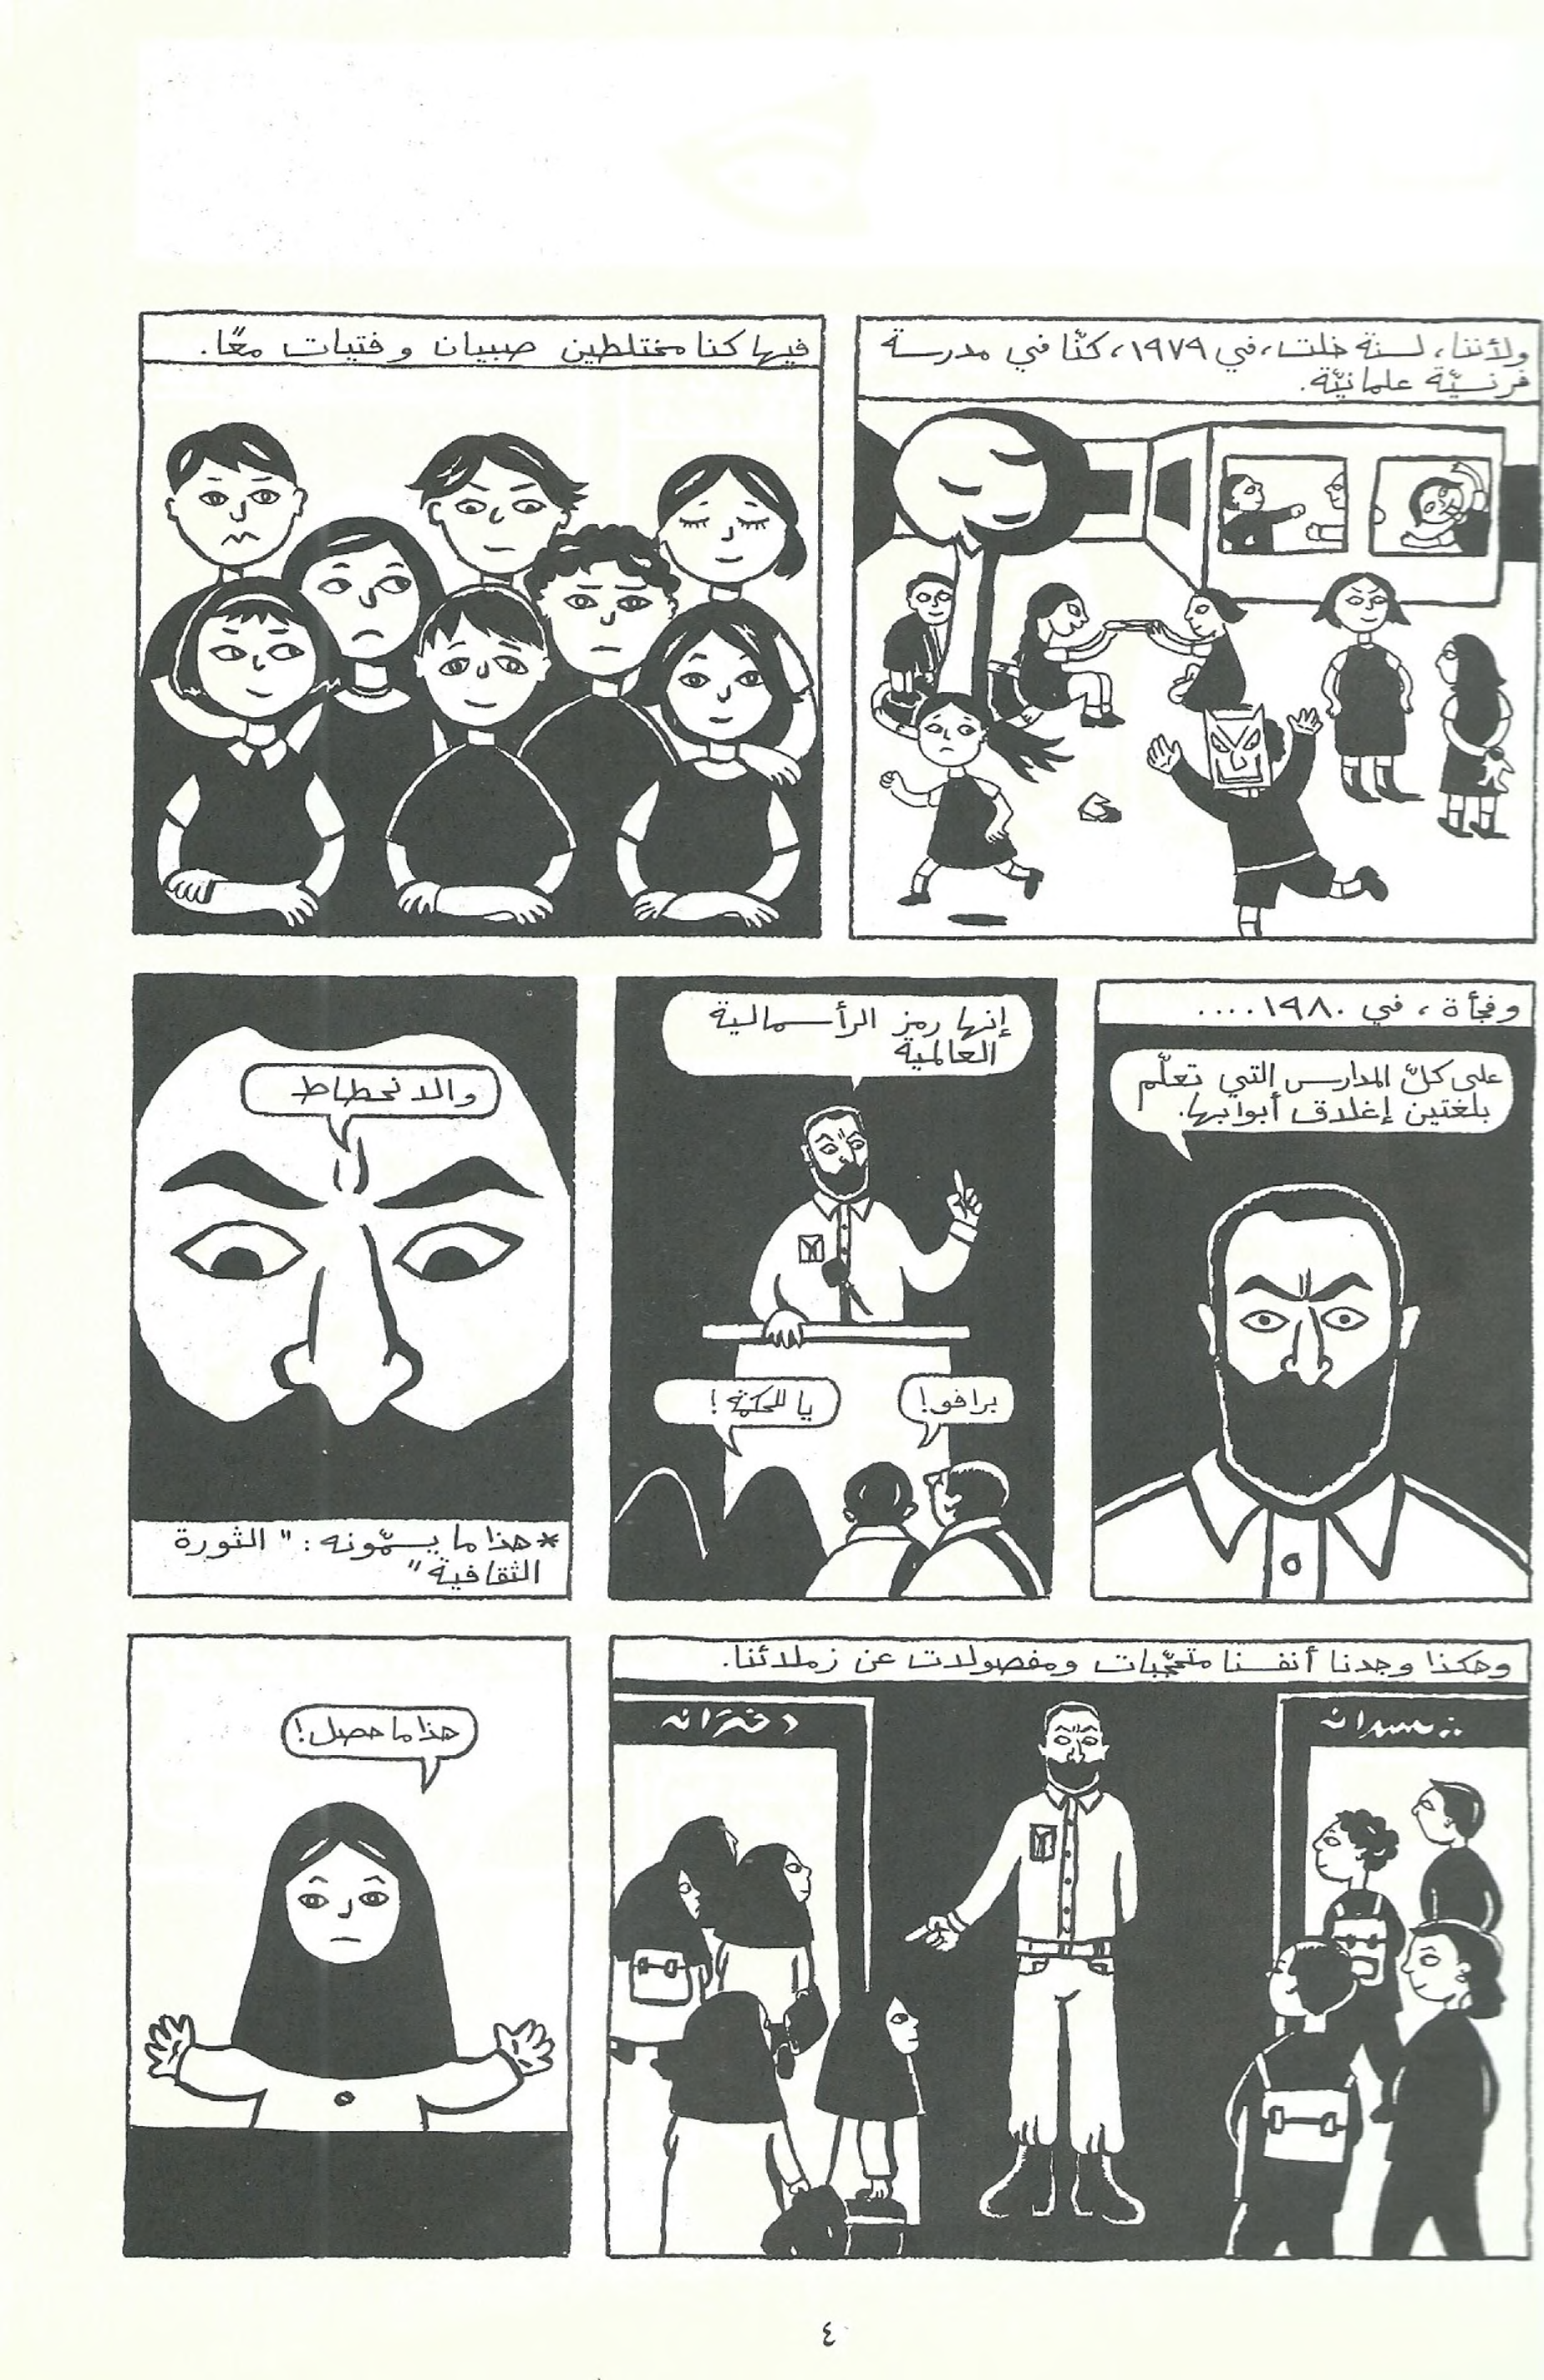 ولأننا، لسنة خلت، في ١٩٧٩، كنّا في مدرسة
فرنسيّة علمانيّة.
فيها كنا مختلطين صبيان وفتيات معًا.
وفجأة، في ١٩٨٠....
على كلّ المدارس التي تعلّم
بلغتين إغلاق أبوابها.
إنها رمز الرأسمالية
العالمية
برافو!
يا للحكمة!
والانحطاط
*هذا ما يسمّونه: "الثورة
الثقافية"
وهكذا وجدنا أنفسنا متحجّبات ومفصولات عن زملائنا.
پسرانه
دخترانه
هذا ما حصل!
٤